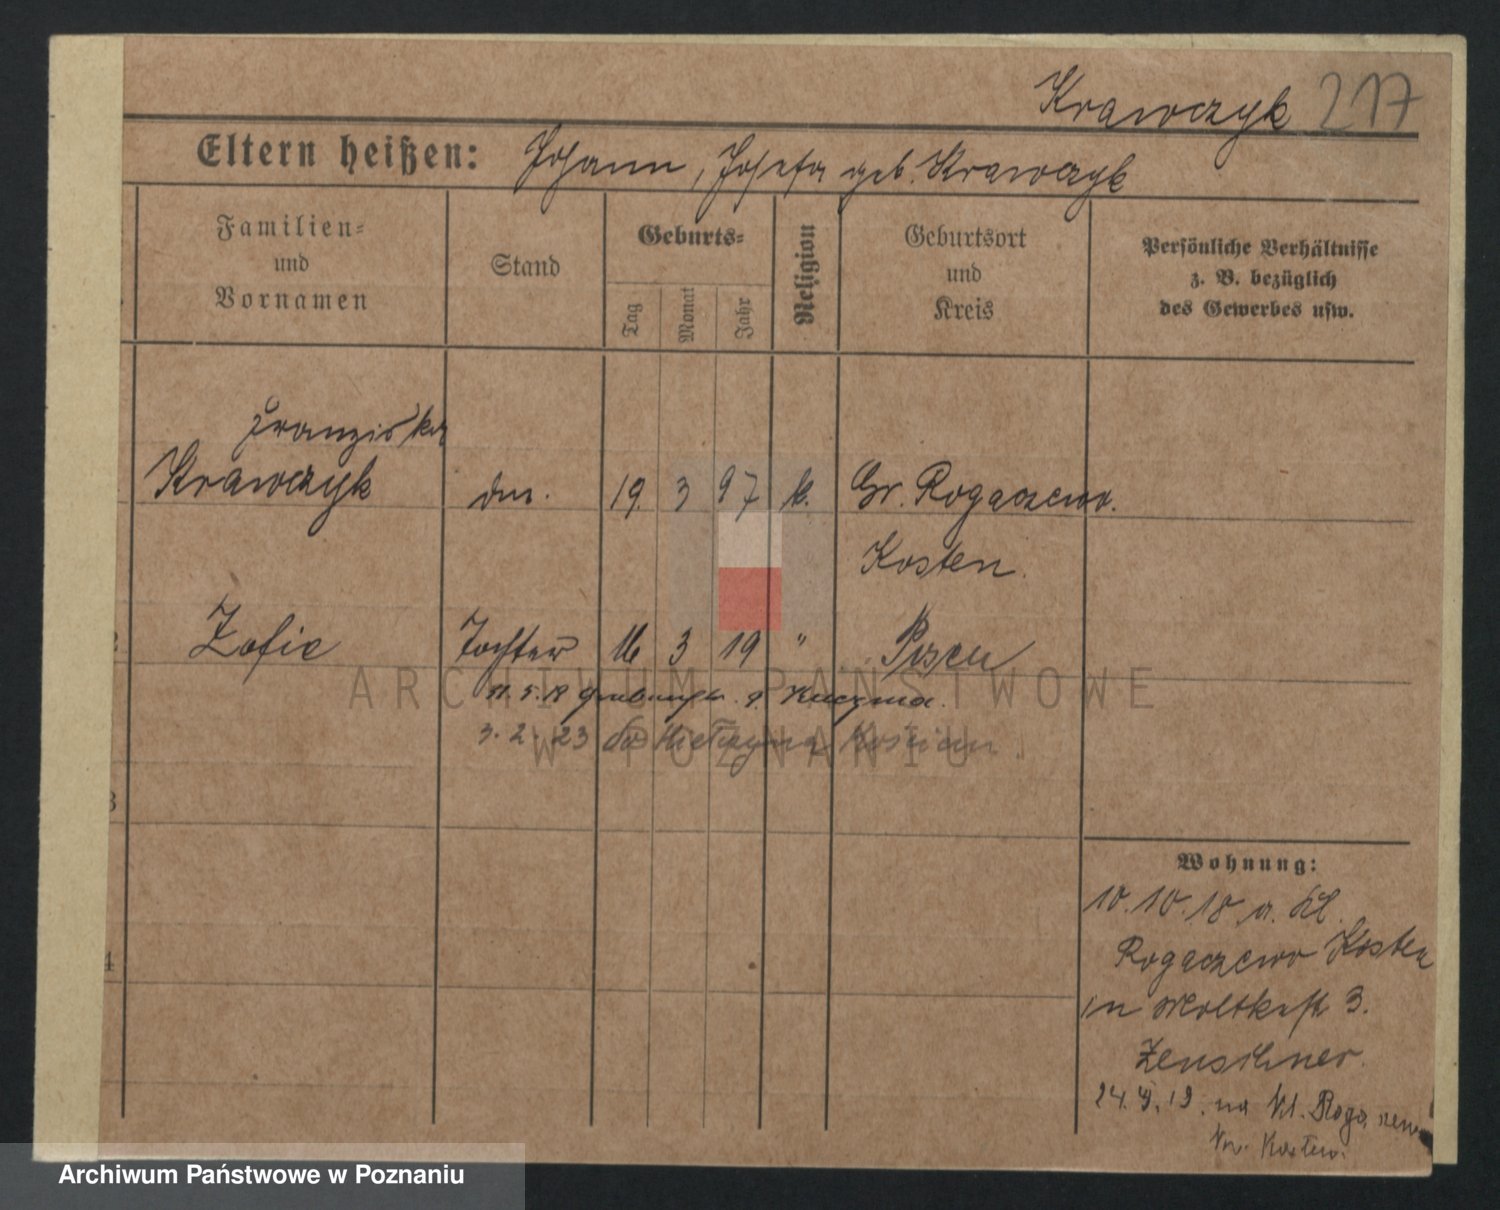 Krawczyk 217
Eltern heißen: Johann, Josefa geb. Krawczyk
Familien-
und
Vornamen
Stand
Geburts-
Tag
Monat
Jahr
Religion
Geburtsort
und
Kreis
Persönliche Verhältnisse
z. B. bezüglich
des Gewerbes usw.
Franziska
Krawczyk 19. 3 97 k. Gr. Rogaczewo.
Kosten.
Zofie Tochter 16 3 19 " Posen
3. 2. 23 do
3
4
Wohnung:
10.10.18 a. Kl.
Rogaczewo Kosten
in Moltkestr 3.
Zenschner.
24. 19. na Kl. Rogaczewo
Kosten.
ARCHIWUM PAŃSTWOWE
W POZNANIU
Archiwum Państwowe w Poznaniu